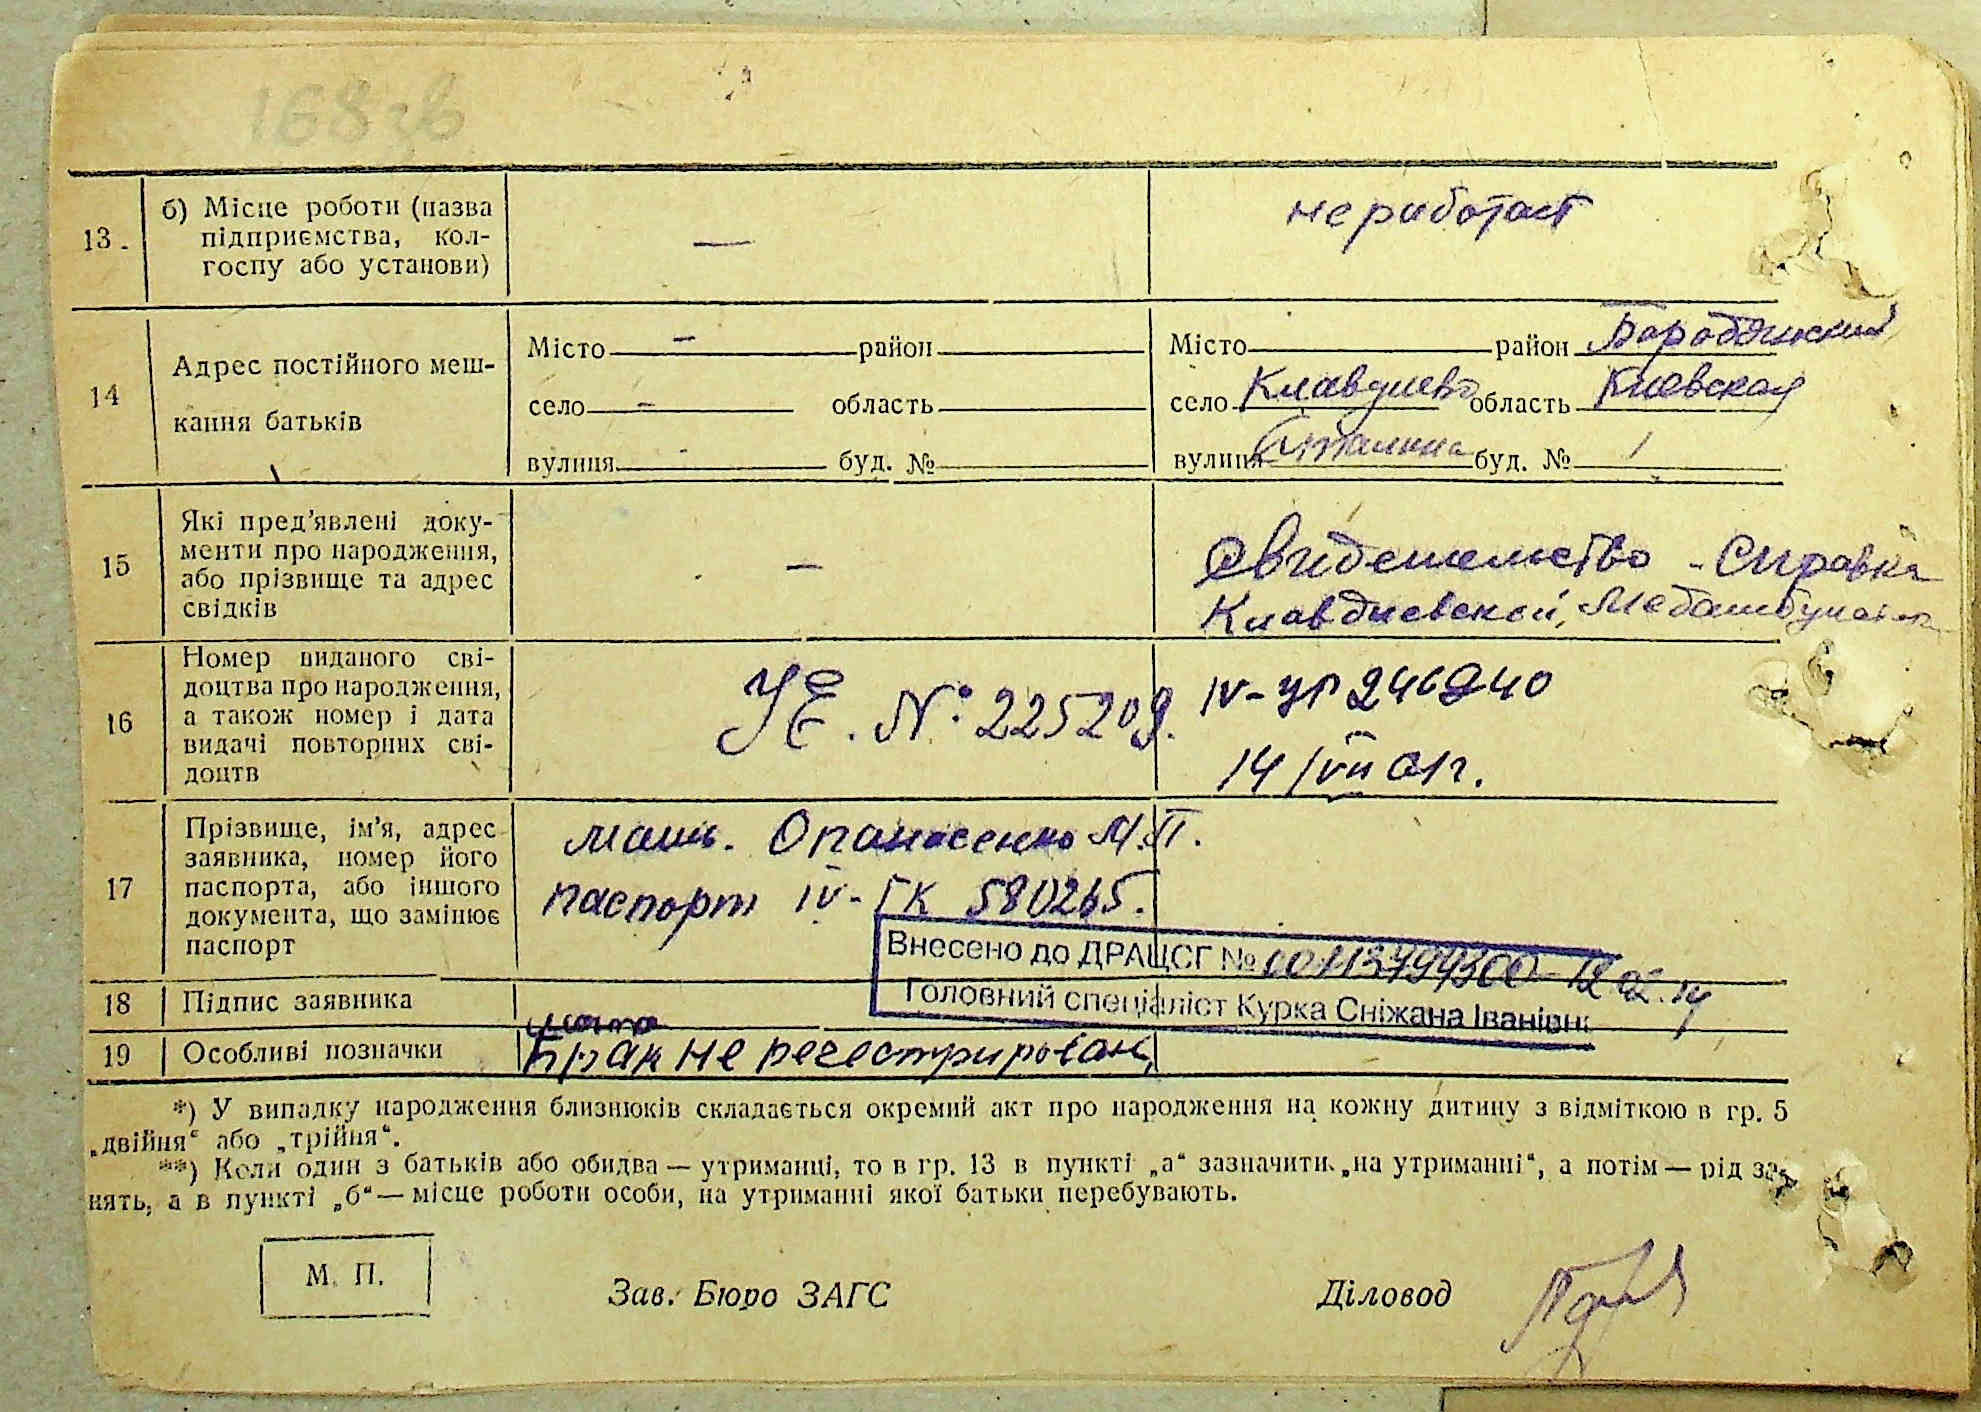 168зв
13. б) Місце роботи (назва — не работает
підприємства, кол-
госпу або установи)
14 Адрес постійного меш-
кання батьків
Місто — район Місто район Бородянский
село — область село Клавдиево область Киевская
вулиця - буд. № вулиця Сталина буд. № 1
15 Які пред'явлені доку-
менти про народження,
або прізвище та адрес
свідків
— Свидетельство - Справка
Клавдиевской,
16 Номер виданого сві-
доцтва про народження,
а також номер і дата
видачі повторних сві-
доцтв
УЕ. №: 225209. IV-УР 246940
14/VII 01г.
17 Прізвище, ім'я, адрес
заявника, номер його
паспорта, або іншого
документа, що замінює
паспорт
мать. Опанасенко М.П.
паспорт IV-ГК 580265.
Внесено до ДРАЦСГ № 00113794300 12.02.14
Головний спеціаліст Курка Сніжана Іванівн
18 Підпис заявника
19 Особливі позначки Брак не регестрирован,
*) У випадку народження близнюків складається окремий акт про народження на кожну дитину з відміткою в гр. 5
„двійня“ або „трійня“.
**) Коли один з батьків або обидва — утриманці, то в гр. 13 в пункті „а“ зазначити „на утриманні“, а потім — рід за-
нять, а в пункті „б“ — місце роботи особи, на утриманні якої батьки перебувають.
М. П.
Зав. Бюро ЗАГС Діловод